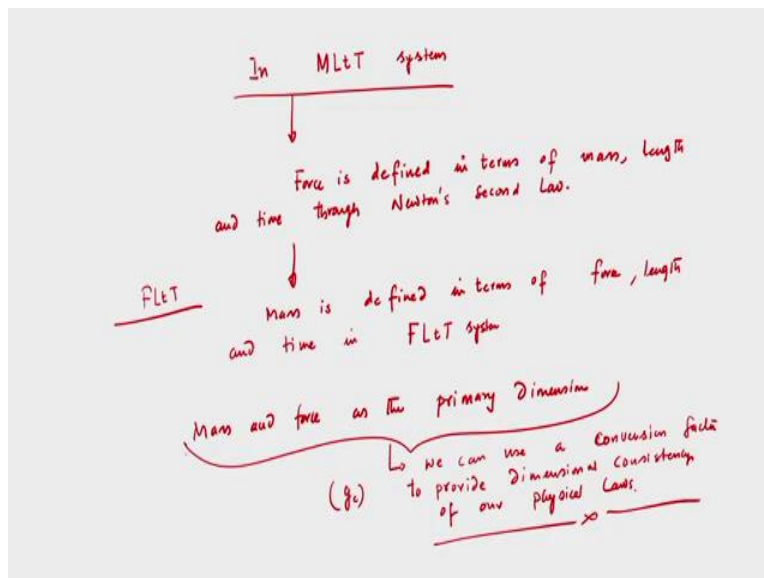 In MLtT system
Force is defined in terms of mass, length
and time through Newton's second Law.
FLtT
Mass is defined in terms of force, length
and time in FLtT system
Mass and force as the primary dimension
we can use a conversion factor
(gc) to provide dimensional consistency
of our physical Laws.